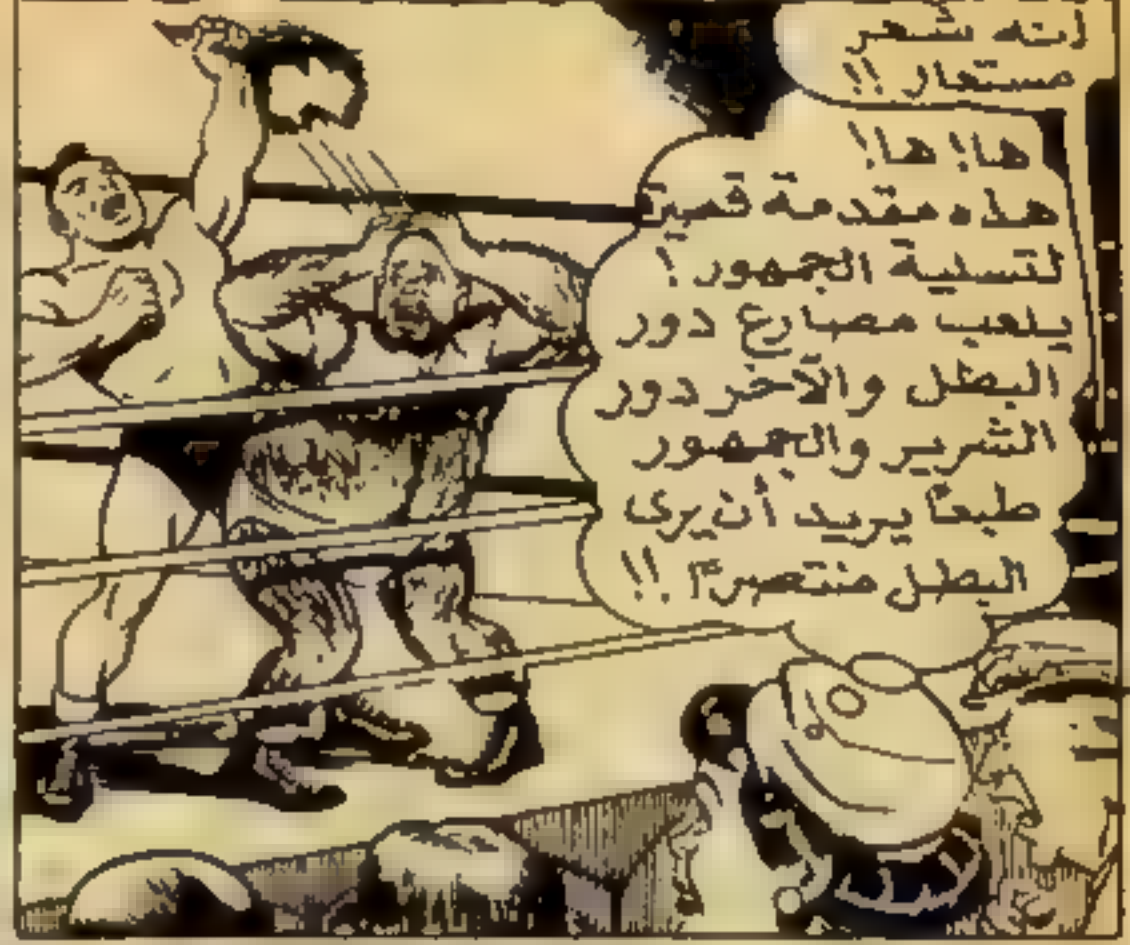 إنه بشعر
مستعار !!
ها! ها!
هذه مقدمة
لتسلية الجمهور ؟
يلعب مصارع دور
البطل والآخر دور
الشرير والجمهور
طبعاً يريد أن يرى
البطل منتصراً !!